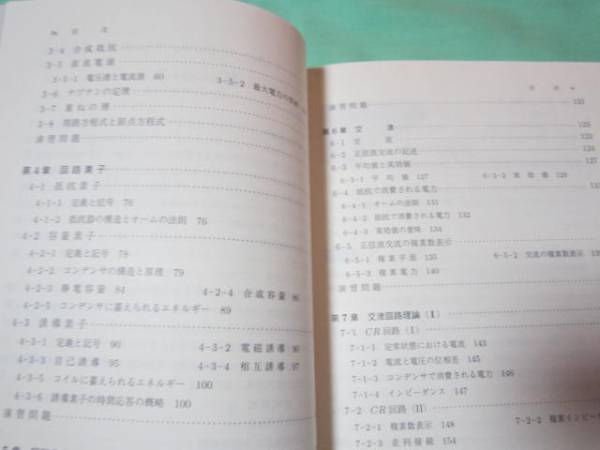 目次
3-4 合成抵抗
3-5 直流電源
3-5-1 電圧源と電流源 60 3-5-2 最大電力の
3-6 テブナンの定理
3-7 重ねの理
3-8 閉路方程式と節点方程式
演習問題
第4章 回路素子
4-1 抵抗素子
4-1-1 定義と記号 76
4-1-2 抵抗器の構造とオームの法則 76
4-2 容量素子
4-2-1 定義と記号 78
4-2-2 コンデンサの構造と原理 79
4-2-3 静電容量 84 4-2-4 合成容量 86
4-2-5 コンデンサに蓄えられるエネルギー 89
4-3 誘導素子
4-3-1 定義と記号 90 4-3-2 電磁誘導 90
4-3-3 自己誘導 95 4-3-4 相互誘導 97
4-3-5 コイルに蓄えられるエネルギー 100
4-3-6 誘導素子の時間応答の概略 100
演習問題
演習問題
第6章 交流
6-1 交流
6-2 正弦波交流の記述
6-3 平均値と実効値
6-3-1 平均値 127 6-3-2 実効値 128
6-4 抵抗で消費される電力
6-4-1 オームの法則 131
6-4-2 抵抗で消費される電力 131
6-4-3 実効値の意味 134
6-5 正弦波交流の複素数表示
6-5-1 複素平面 135 6-5-2 交流の複素数表示
6-5-3 複素電力 140
演習問題
第7章 交流回路理論(I)
7-1 CR回路(I)
7-1-1 定常状態における電流 143
7-1-2 電流と電圧の位相差 145
7-1-3 コンデンサで消費される電力 146
7-1-4 インピーダンス 147
7-2 CR回路(II)
7-2-1 複素数表示 149 7-2-2 複素インピー
7-2-3 並列接続 154